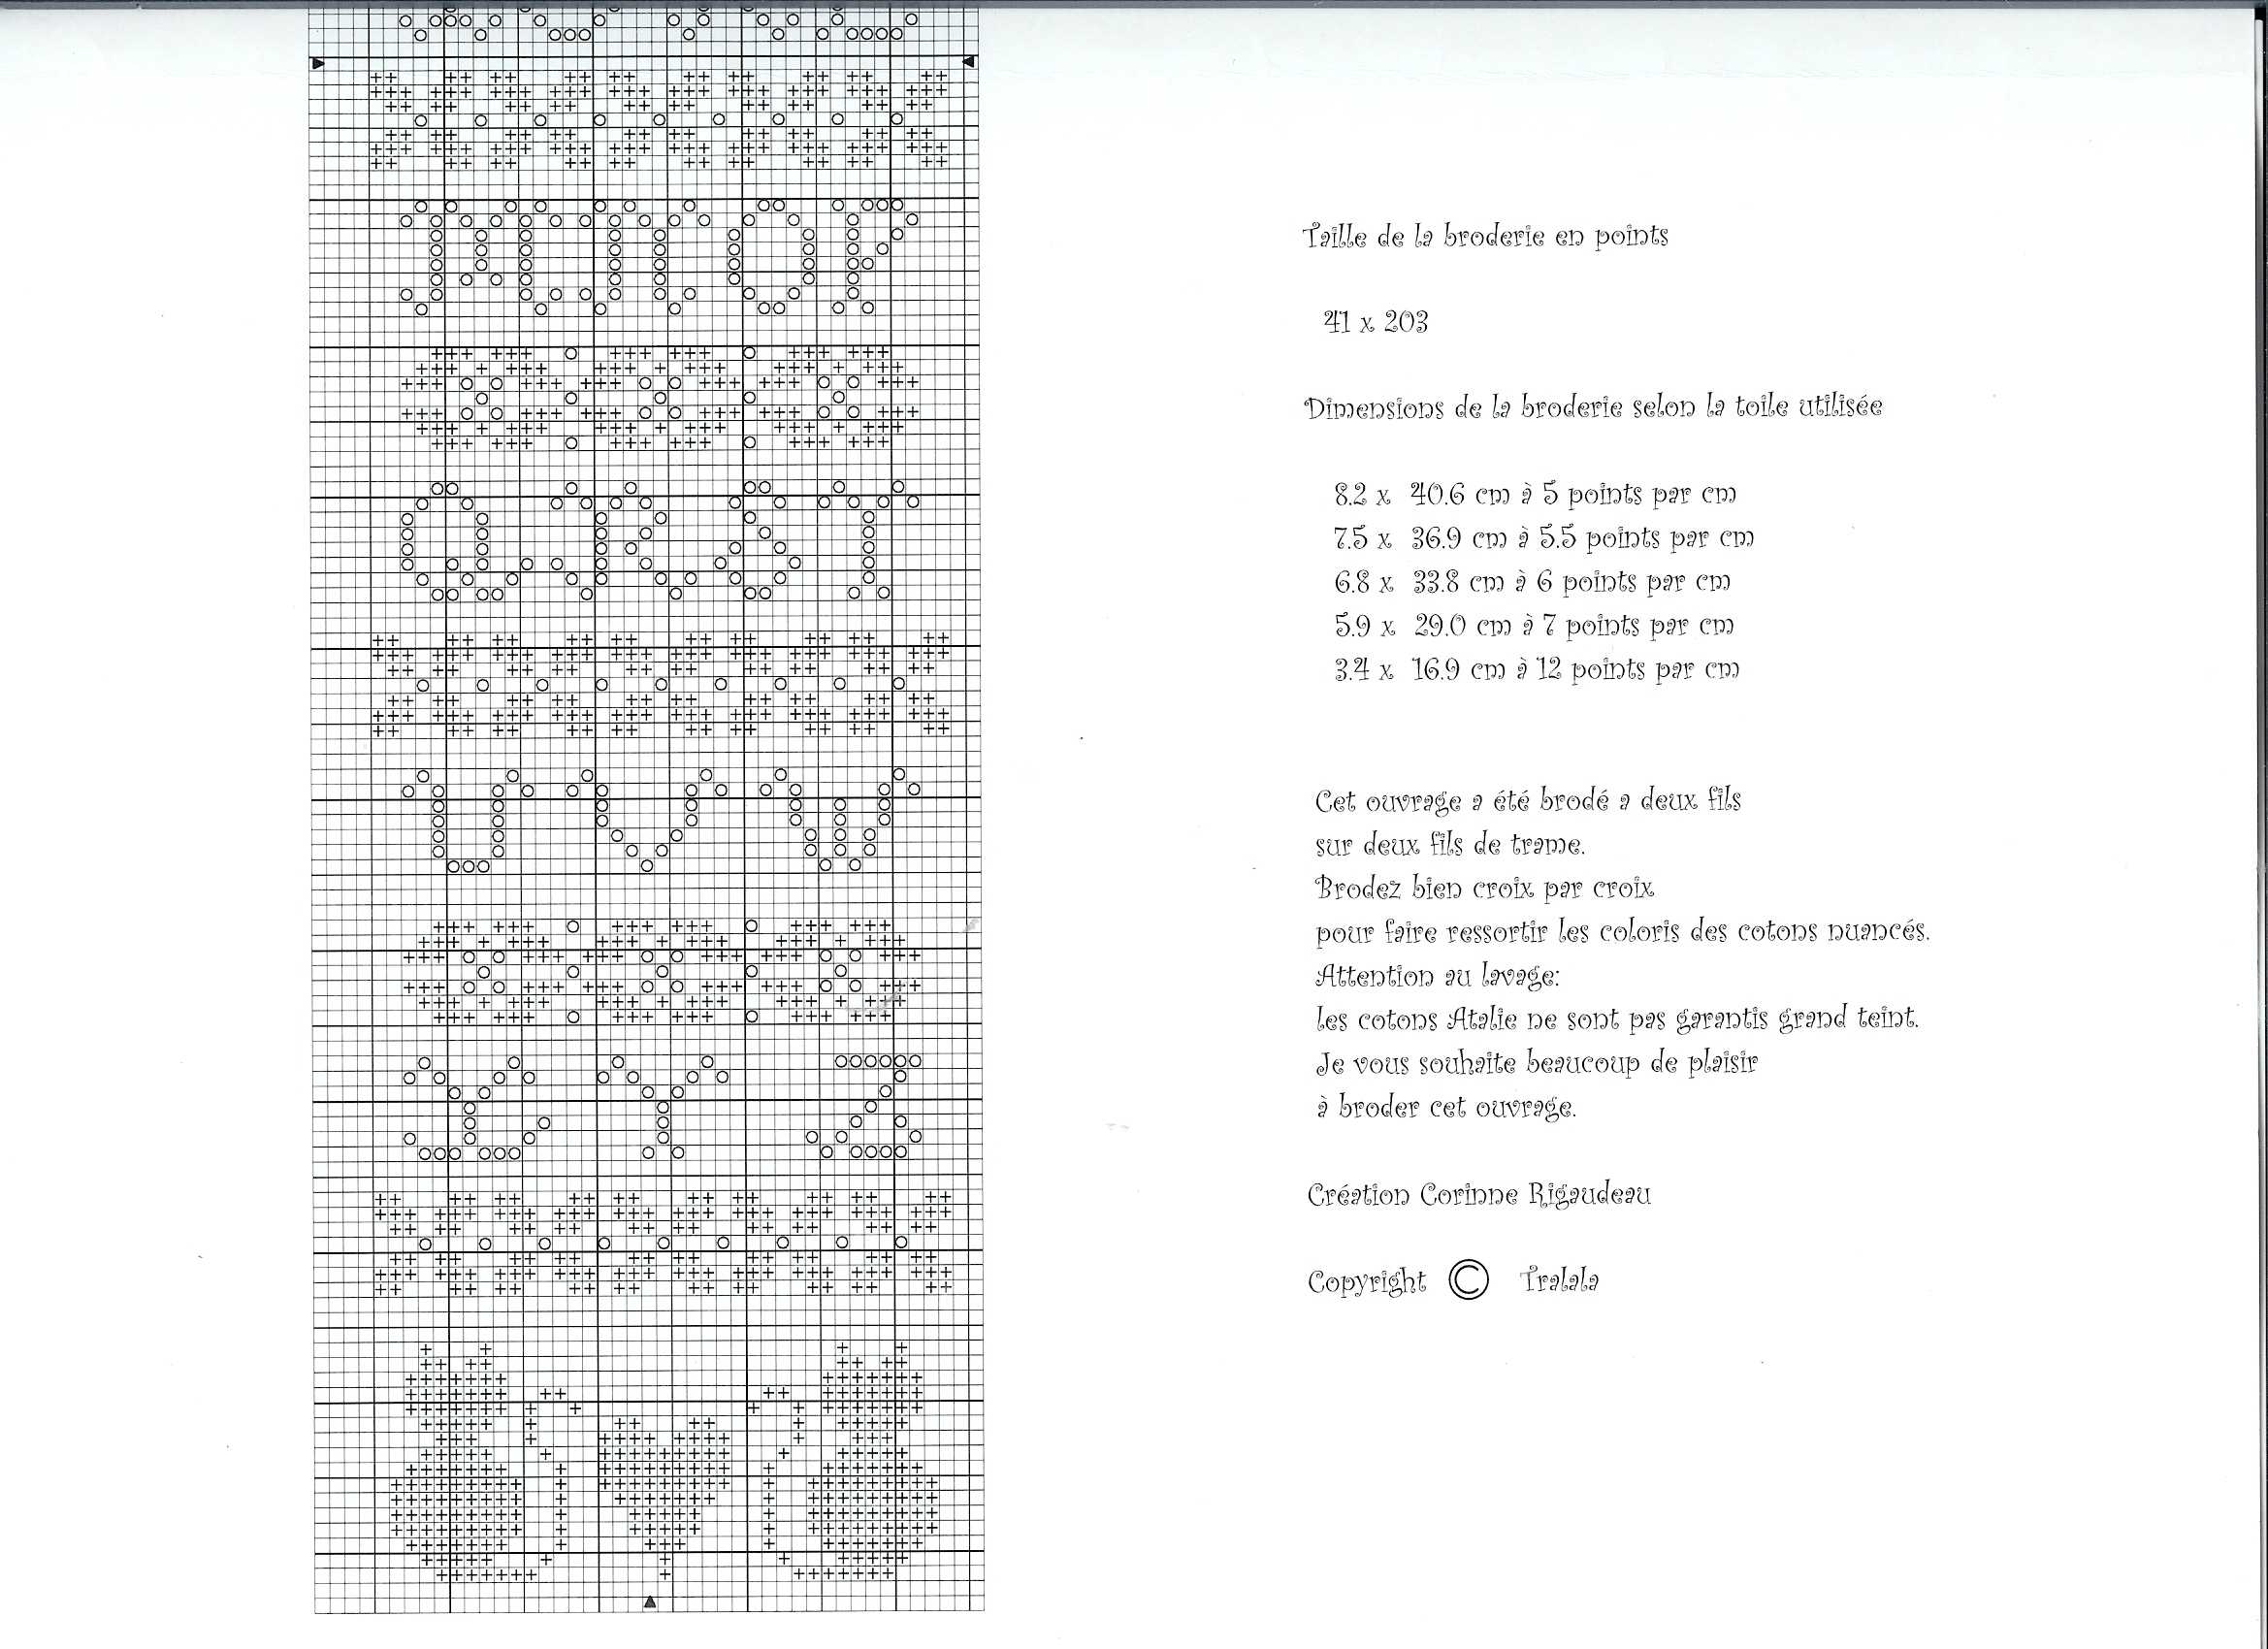 M N O P
Q R S T
U V W
X Y Z
Taille de la broderie en points
41 x 203
Dimensions de la broderie selon la toile utilisée
8.2 x 40.6 cm à 5 points par cm
7.5 x 36.9 cm à 5.5 points par cm
6.8 x 33.8 cm à 6 points par cm
5.9 x 29.0 cm à 7 points par cm
3.4 x 16.9 cm à 12 points par cm
Cet ouvrage a été brodé a deux fils
sur deux fils de trame.
Brodez bien croix par croix
pour faire ressortir les coloris des cotons nuancés.
Attention au lavage:
les cotons Atalie ne sont pas garantis grand teint.
Je vous souhaite beaucoup de plaisir
à broder cet ouvrage.
Création Corinne Rigaudeau
Copyright © Tralala